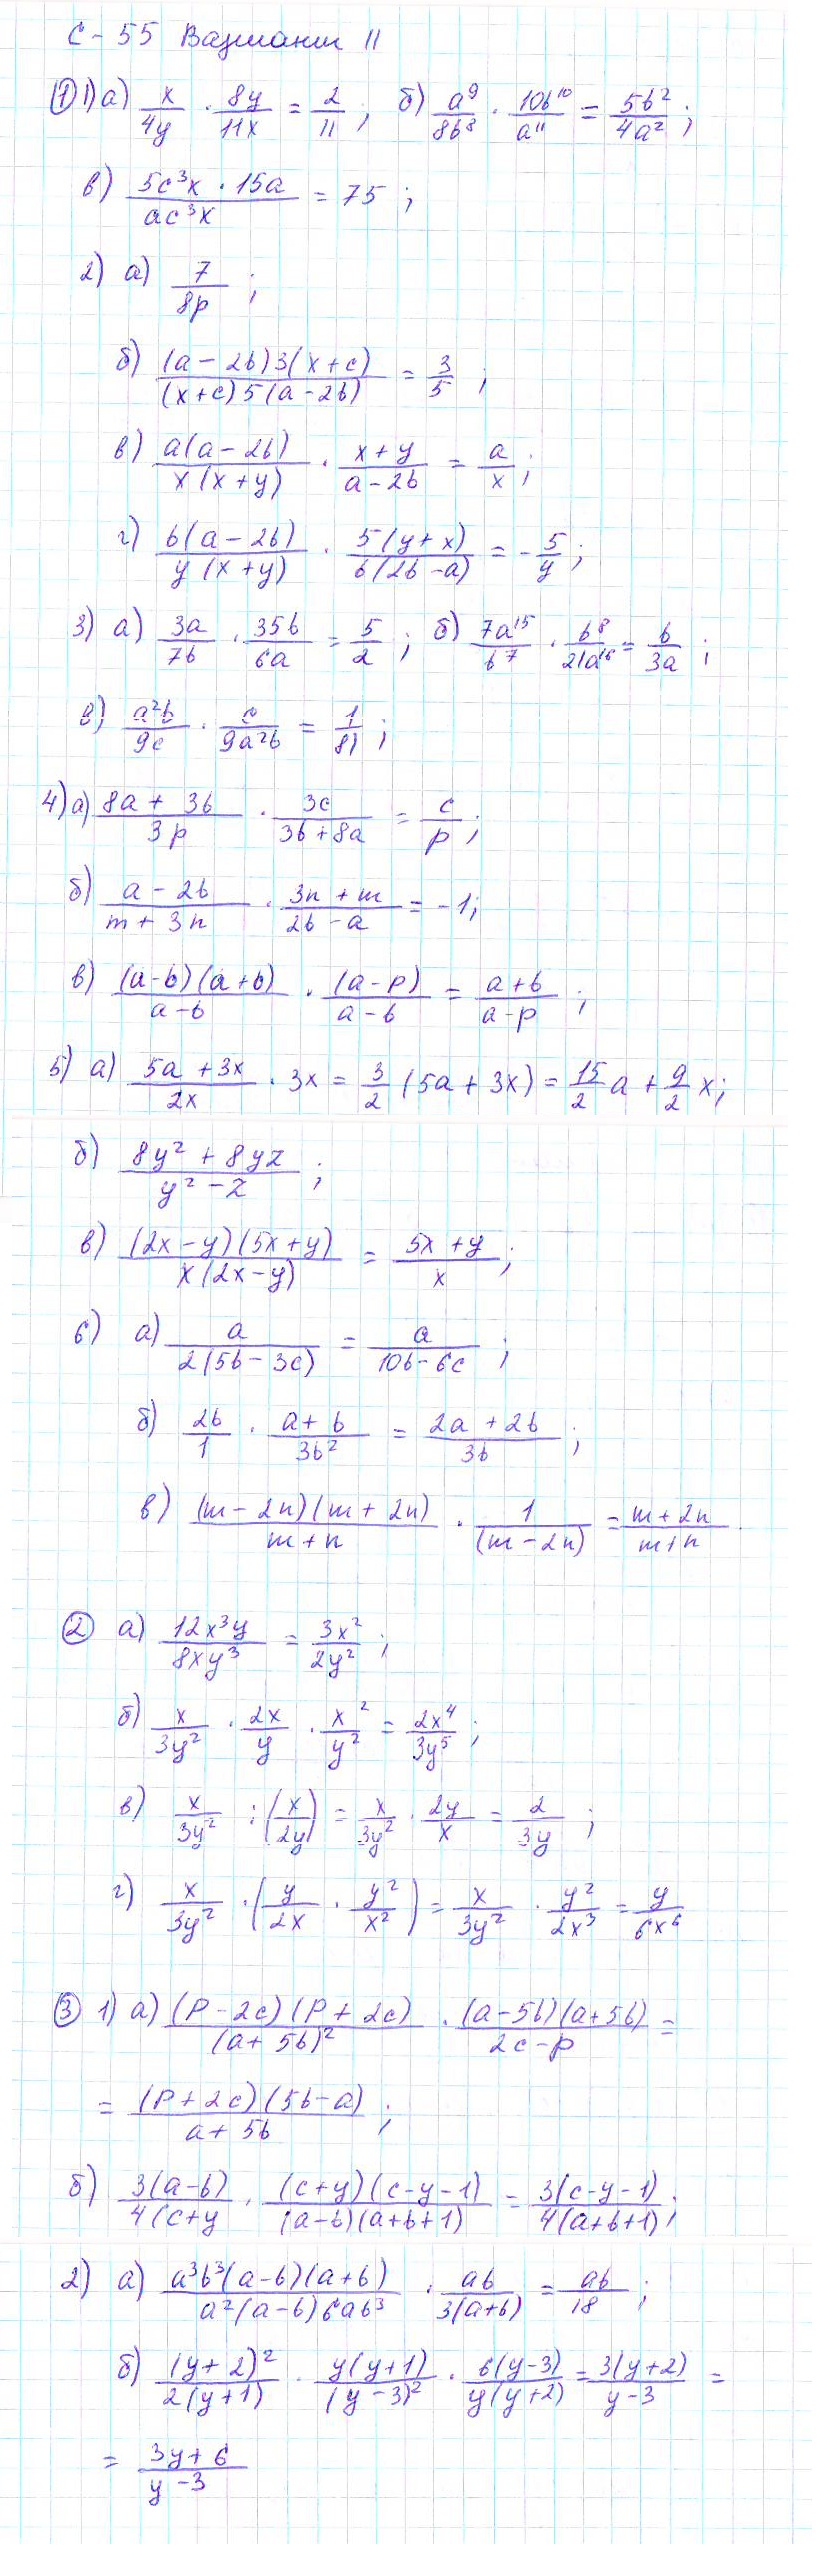 С-55 Вариант II
① 1) а) x/4y · 8y/11x = 2/11 ; б) a⁹/8b⁸ · 10b¹⁰/a¹¹ = 5b²/4a² ;
в) 5c³x · 15a / ac³x = 75 ;
2) а) 7/8p ;
б) (a - 2b)3(x+c) / (x+c)5(a-2b) = 3/5 ;
в) a(a-2b)/x(x+y) · x+y/a-2b = a/x ;
г) b(a-2b)/y(x+y) · 5(y+x)/b(2b-a) = -5/y ;
3) а) 3a/7b · 35b/6a = 5/2 ; б) 7a¹⁵/b⁷ · b⁸/21a¹⁶ = b/3a ;
в) a²b/9c · c/9a²b = 1/81 ;
4) а) 8a + 3b/3p · 3c/3b+8a = c/p ;
б) a - 2b/m + 3n · 3n + m/2b - a = -1 ;
в) (a-b)(a+b)/a-b · (a-p)/a-b = a+b/a-p ;
5) а) 5a + 3x/2x · 3x = 3/2 (5a + 3x) = 15/2 a + 9/2 x ;
б) 8y² + 8yz / y² - z ;
в) (2x-y)(5x+y) / x(2x-y) = 5x + y/x ;
6) а) a/2(5b-3c) = a/10b-6c ;
б) 2b/1 · a+b/3b² = 2a + 2b/3b ;
в) (m-2n)(m+2n)/m+n · 1/(m-2n) = m+2n/m+n .
② а) 12x³y/8xy³ = 3x²/2y² ;
б) x/3y² · 2x/y · x²/y² = 2x⁴/3y⁵ ;
в) x/3y² : (x/2y) = x/3y² · 2y/x = 2/3y ;
г) x/3y² · (y/2x · y²/x²) = x/3y² · y²/2x³ = y/6x⁶
③ 1) а) (p-2c)(p+2c)/(a+5b)² · (a-5b)(a+5b)/2c-p =
= (p+2c)(5b-a)/a+5b ;
б) 3(a-b)/4(c+y · (c+y)(c-y-1)/(a-b)(a+b+1) = 3(c-y-1)/4(a+b+1) ;
2) а) a³b³(a-b)(a+b)/a²(a-b)6ab³ · ab/3(a+b) = ab/18 ;
б) (y+2)²/2(y+1) · y(y+1)/(y-3)² · 6(y-3)/y(y+2) = 3(y+2)/y-3 =
= 3y+6/y-3